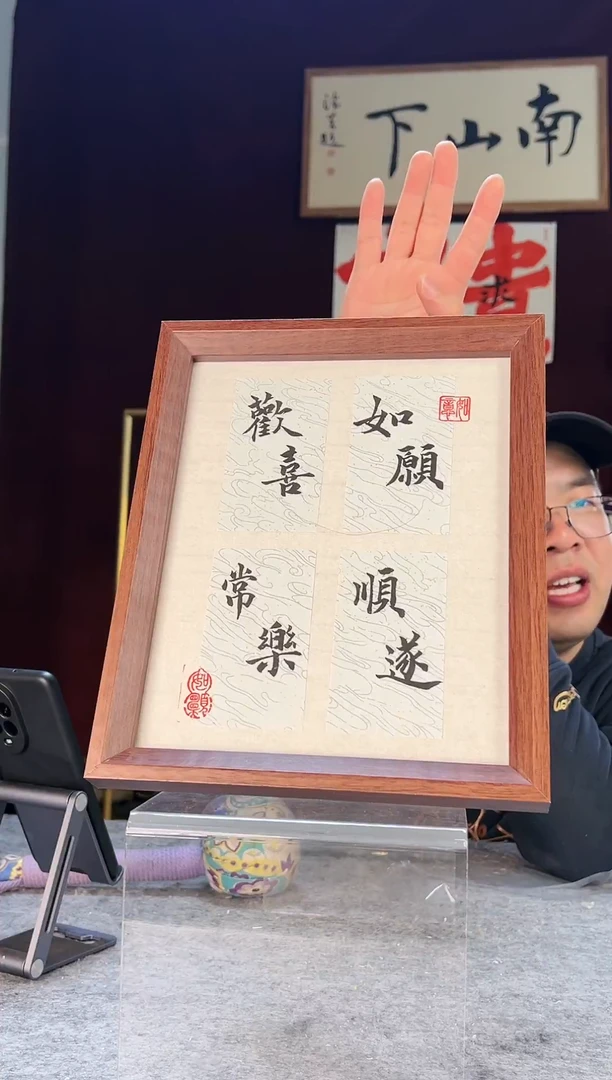 南山下
如意
如願
順遂
歡喜
常樂